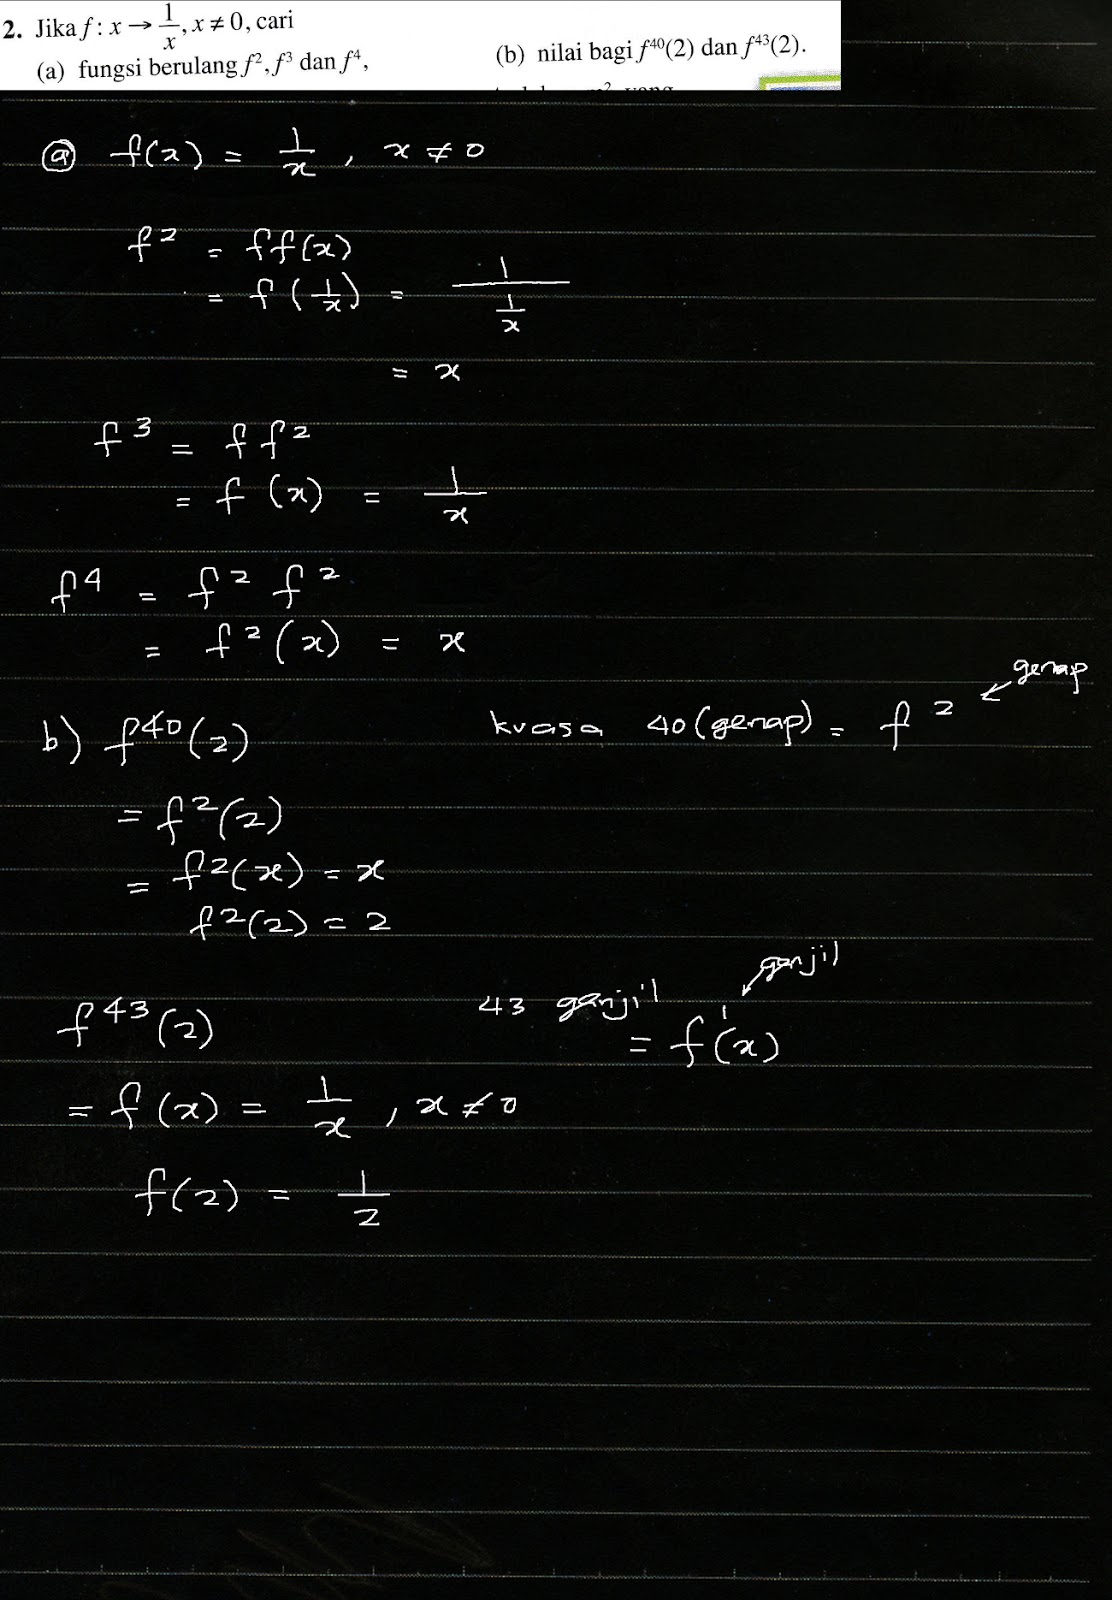 2. Jika f : x → 1/x, x ≠ 0, cari
(a) fungsi berulang f², f³ dan f⁴,
(b) nilai bagi f⁴⁰(2) dan f⁴³(2).
ⓐ f(x) = 1/x , x ≠ 0
f² = ff(x)
= f(1/x) = 1/(1/x)
= x
f³ = f f²
= f (x) = 1/x
f⁴ = f² f²
= f²(x) = x
genap
b) f⁴⁰(2) kuasa 40 (genap) = f²
= f²(2)
= f²(x) = x
f²(2) = 2
ganjil
f⁴³(2) 43 ganjil
= f¹(x)
= f(x) = 1/x , x ≠ 0
f(2) = 1/2